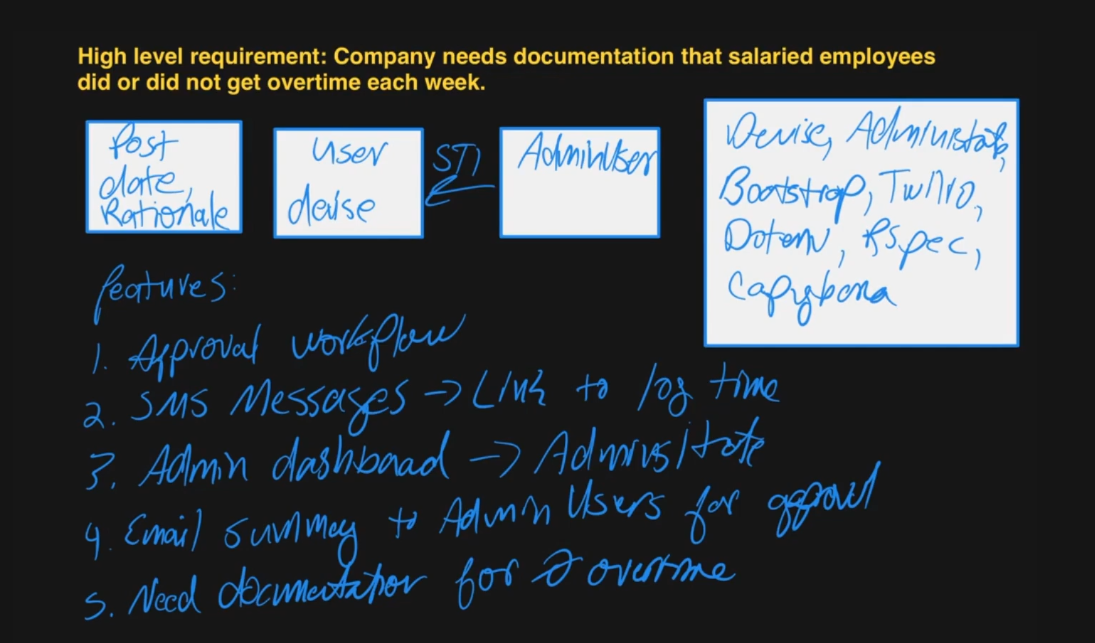 High level requirement: Company needs documentation that salaried employees
did or did not get overtime each week.
Post
date,
Rationale
User
devise
STI
AdminUser
Devise, Administrate,
Bootstrap, Twilio,
Dotenv, RSpec,
Capybara
features:
1. Approval workflow
2. SMS Messages -> Link to log time
3. Admin dashboard -> Administrate
4. Email summary to Admin Users for approval
5. Need documentation for overtime